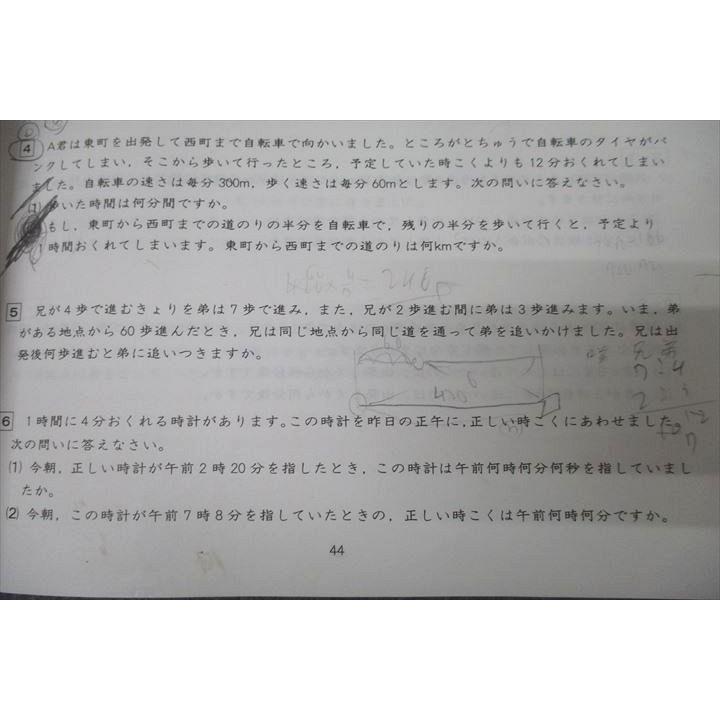 4 A君は東町を出発して西町まで自転車で向かいました。ところがとちゅうで自転車のタイヤがパ
ンクしてしまい，そこから歩いて行ったところ，予定していた時こくよりも12分おくれてしまい
ました。自転車の速さは毎分300m，歩く速さは毎分60mとします。次の問いに答えなさい。
(1) 歩いた時間は何分間ですか。
もし，東町から西町までの道のりの半分を自転車で，残りの半分を歩いて行くと，予定より
1時間おくれてしまいます。東町から西町までの道のりは何kmですか。
5 兄が4歩で進むきょりを弟は7歩で進み，また，兄が2歩進む間に弟は3歩進みます。いま，弟
がある地点から60歩進んだとき，兄は同じ地点から同じ道を通って弟を追いかけました。兄は出
発後何歩進むと弟に追いつきますか。
60
420
兄 弟
7:4
2:3
6 1時間に4分おくれる時計があります。この時計を昨日の正午に，正しい時こくにあわせました。
次の問いに答えなさい。
(1) 今朝，正しい時計が午前2時20分を指したとき，この時計は午前何時何分何秒を指していまし
たか。
(2) 今朝，この時計が午前7時8分を指していたときの，正しい時こくは午前何時何分ですか。
44